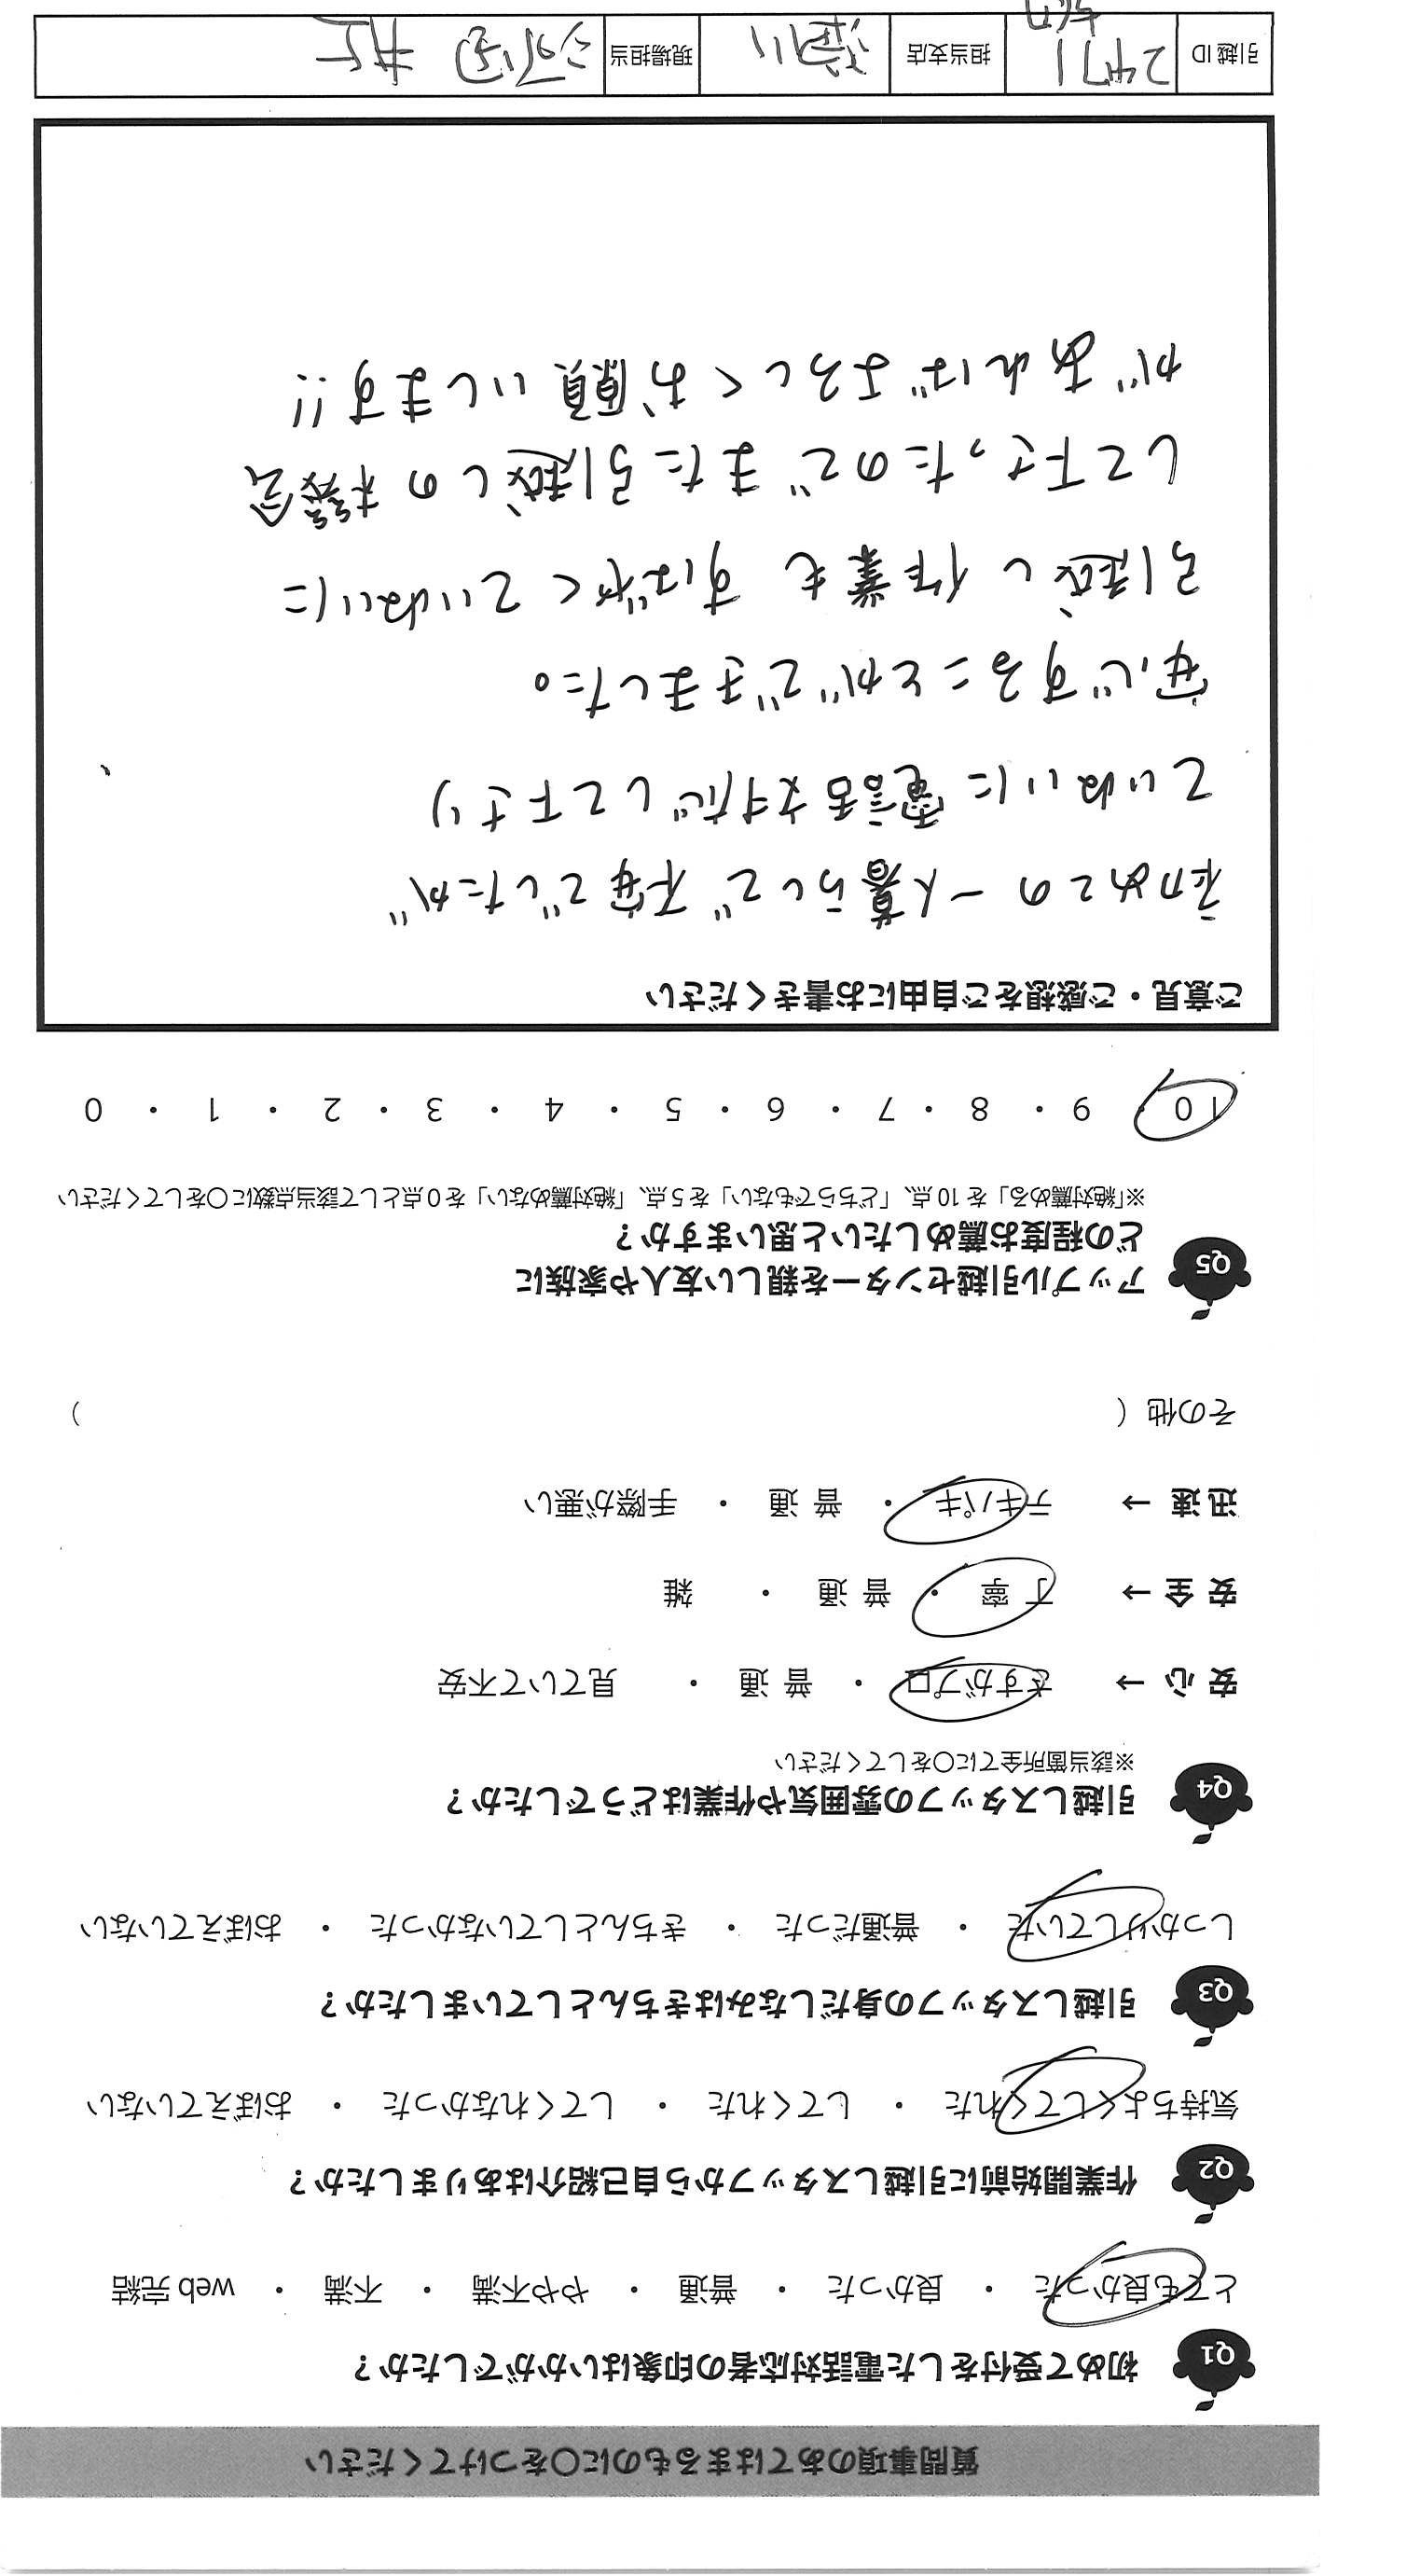 質問事項のあてはまるものに〇をつけてください
Q1 初めて受付をした電話対応者の印象はいかがでしたか？
とても良かった ・ 良かった ・ 普通 ・ やや不満 ・ 不満 ・ web 完結
Q2 作業開始前に引越しスタッフから自己紹介はありましたか？
気持ちよくしてくれた ・ してくれた ・ してくれなかった ・ おぼえていない
Q3 引越しスタッフの身だしなみはきちんとしていましたか？
しっかりしていた ・ 普通だった ・ きちんとしていなかった ・ おぼえていない
Q4 引越しスタッフの雰囲気や作業はどうでしたか？
※該当箇所全てに〇をしてください
安 心 → さすがプロ ・ 普 通 ・ 見ていて不安
安 全 → 丁 寧 ・ 普 通 ・ 雑
迅 速 → テキパキ ・ 普 通 ・ 手際が悪い
その他（ ）
Q5 アップル引越センターを親しい友人や家族に
どの程度お薦めしたいと思いますか？
※「絶対薦める」を 10 点、「どちらでもない」を 5 点、「絶対薦めない」を 0 点として該当点数に〇をしてください
10 ・ 9 ・ 8 ・ 7 ・ 6 ・ 5 ・ 4 ・ 3 ・ 2 ・ 1 ・ 0
ご意見・ご感想をご自由にお書きください
初めての一人暮らしで不安でしたが
ていねいに電話対応して下さり
安心することができました。
引越し作業もすばやくていねいに
して下さったのでまた引越しの機会
があればよろしくお願いします!!
引越 ID 担当支店 現場担当